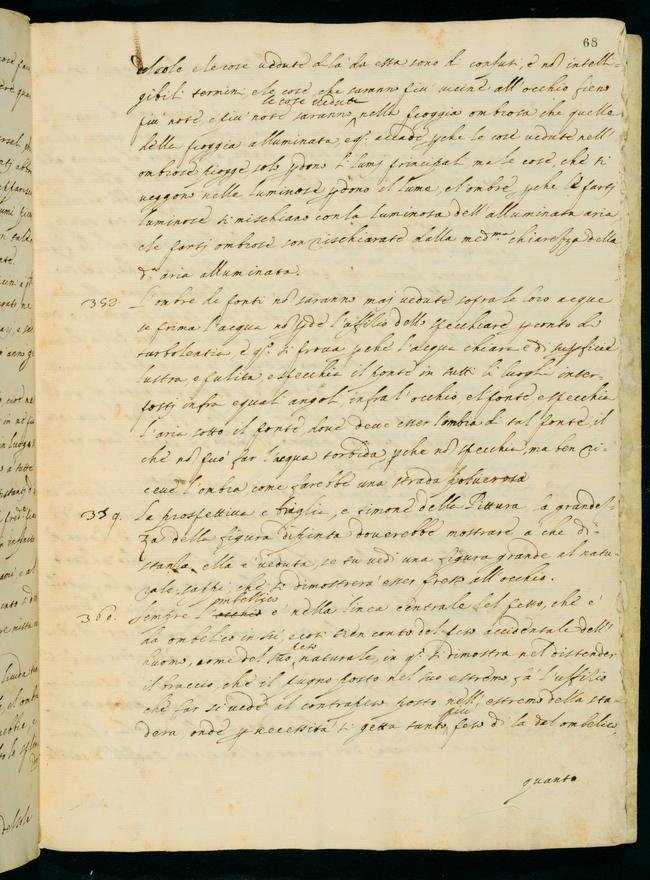 68
del sole e le cose vedute di là da essa sono di confusi, e nō intelli-
gibili termini, e le cose che saranno più vicine all'occhio fieno
più note e più note saranno le cose vedute nella pioggia ombrosa che quelle
della pioggia alluminata, e q.º accade pche le cose vedute nell'
ombrose piogge solo pdono li lumi principali ma le cose che si
veggono nelle luminose pdono il lume, e l'ombre pche le parti
luminose si mischiano con la luminosa dell'alluminata aria
e le parti ombrose son rischiarate dalla med.ma chiarezza della
d.ª aria alluminata.
358 L'ombre de ponti nō saranno mai vedute sopra le loro acque
se prima l'acqua nō pde l'uffitio dello specchiare p conto di
turbolentia, e q.º si prova pche l'acqua chiara è di supficie
lustra e pulita, e specchia il ponte in tutti li luoghi inter-
posti infra equali angoli infra l'occhio, e'l ponte e specchia
l'aria sotto il ponte dove deve esser l'ombra di tal ponte, il
che nō può far l'acqua torbida pche nō specchia, ma ben ri-
ceve l'ombra come farebbe una strada polverosa
359. La prospettiva e briglia, e timone della Pittura. la grandez-
za della figura dipinta doverebbe mostrare a che di-
stanza ella è veduta, se tu vedi una figura grande al natu-
rale, sappi che si dimostrerà esser presso all'occhio.
360. Sempre l'ombellico è nella linea centrale del peso, che è
da ombelico in sù, e così tien conto del peso accidentale dell'
huomo, come del suo peso naturale, in q.º si dimostra nel distender
il braccio, che il pugno posto nel suo estremo fà l'uffitio
che far si vede al contrapeso posto nell'estremo della sta-
dera, onde p necessità si getta tanto più peso di la dal ombelico
quanto